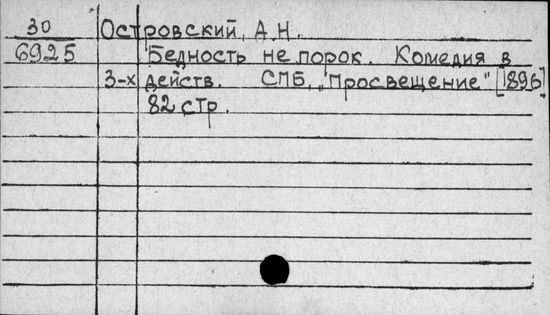 30 Островский, А.Н.
6925 Бедность не порок. Комедия в
3-х действ. СПБ, "Просвещение" [1896]
82 стр.